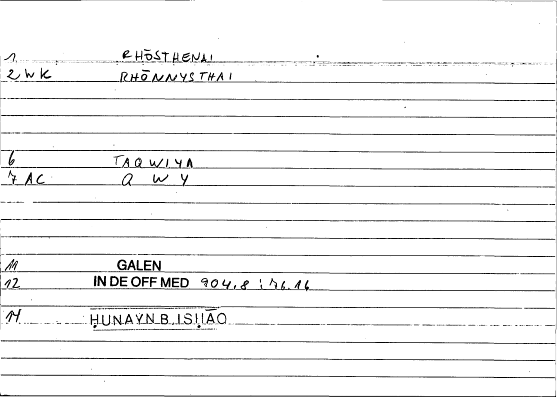 1 RHŌSTHENAI
2 WK RHŌNNYSTHAI
6 TAQWIYA
7 AC Q W Y
11 GALEN
12 IN DE OFF MED 904,8 ; 76.16
14 ḤUNAYN B. ISḤĀQ